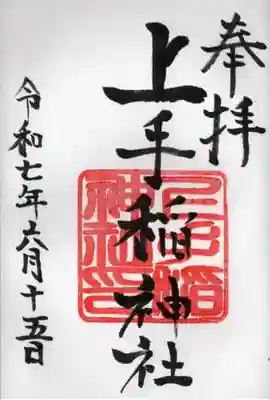 奉拝
上手稲神社
令和七年六月十五日
上手稲
神社印